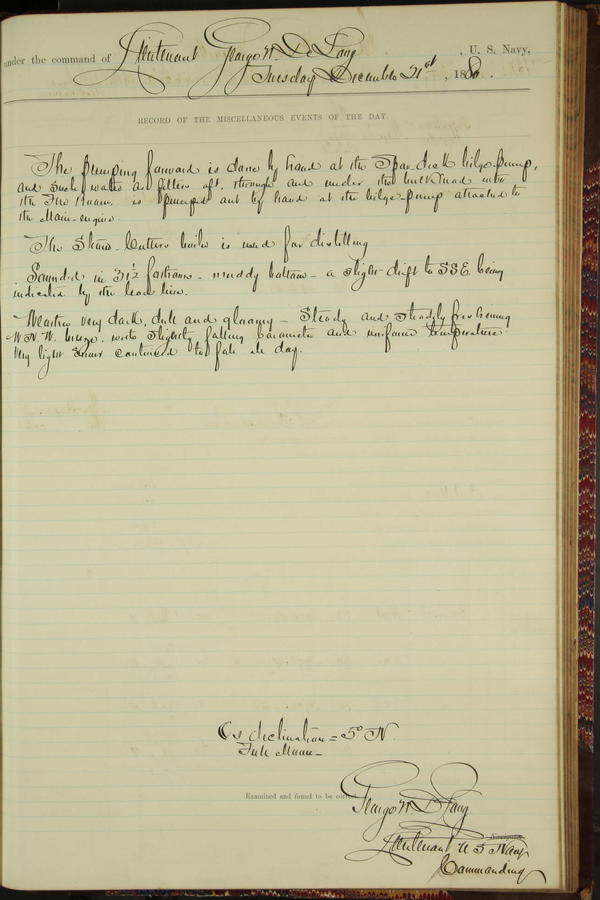 under the command of Lieutenant George W. De Long, U. S. Navy.
Tuesday December 21st, 1880.
RECORD OF THE MISCELLANEOUS EVENTS OF THE DAY.
The pumping forward is done by hand at the Spar-deck bilge-pump,
and such water as filters aft, through and under the bulkhead into
the Fire Room, is pumped out by hand at the bilge-pump attached to
the Main-engine.
The Steam-Cutters boiler is used for distilling
Sounded in 31½ fathoms - muddy bottom - a slight drift to SSE being
indicated by the lead line.
Weather very dark, dull and gloomy - Steady and steadily freshening
N.N.W. breeze, with slightly falling barometer and uniform temperature
Very light snow continued to fall all day.
☾'s declination = 5° N.
Full Moon -
Examined and found to be correct.
George W. De Long
Navigator.
Lieutenant U S Navy
Commanding